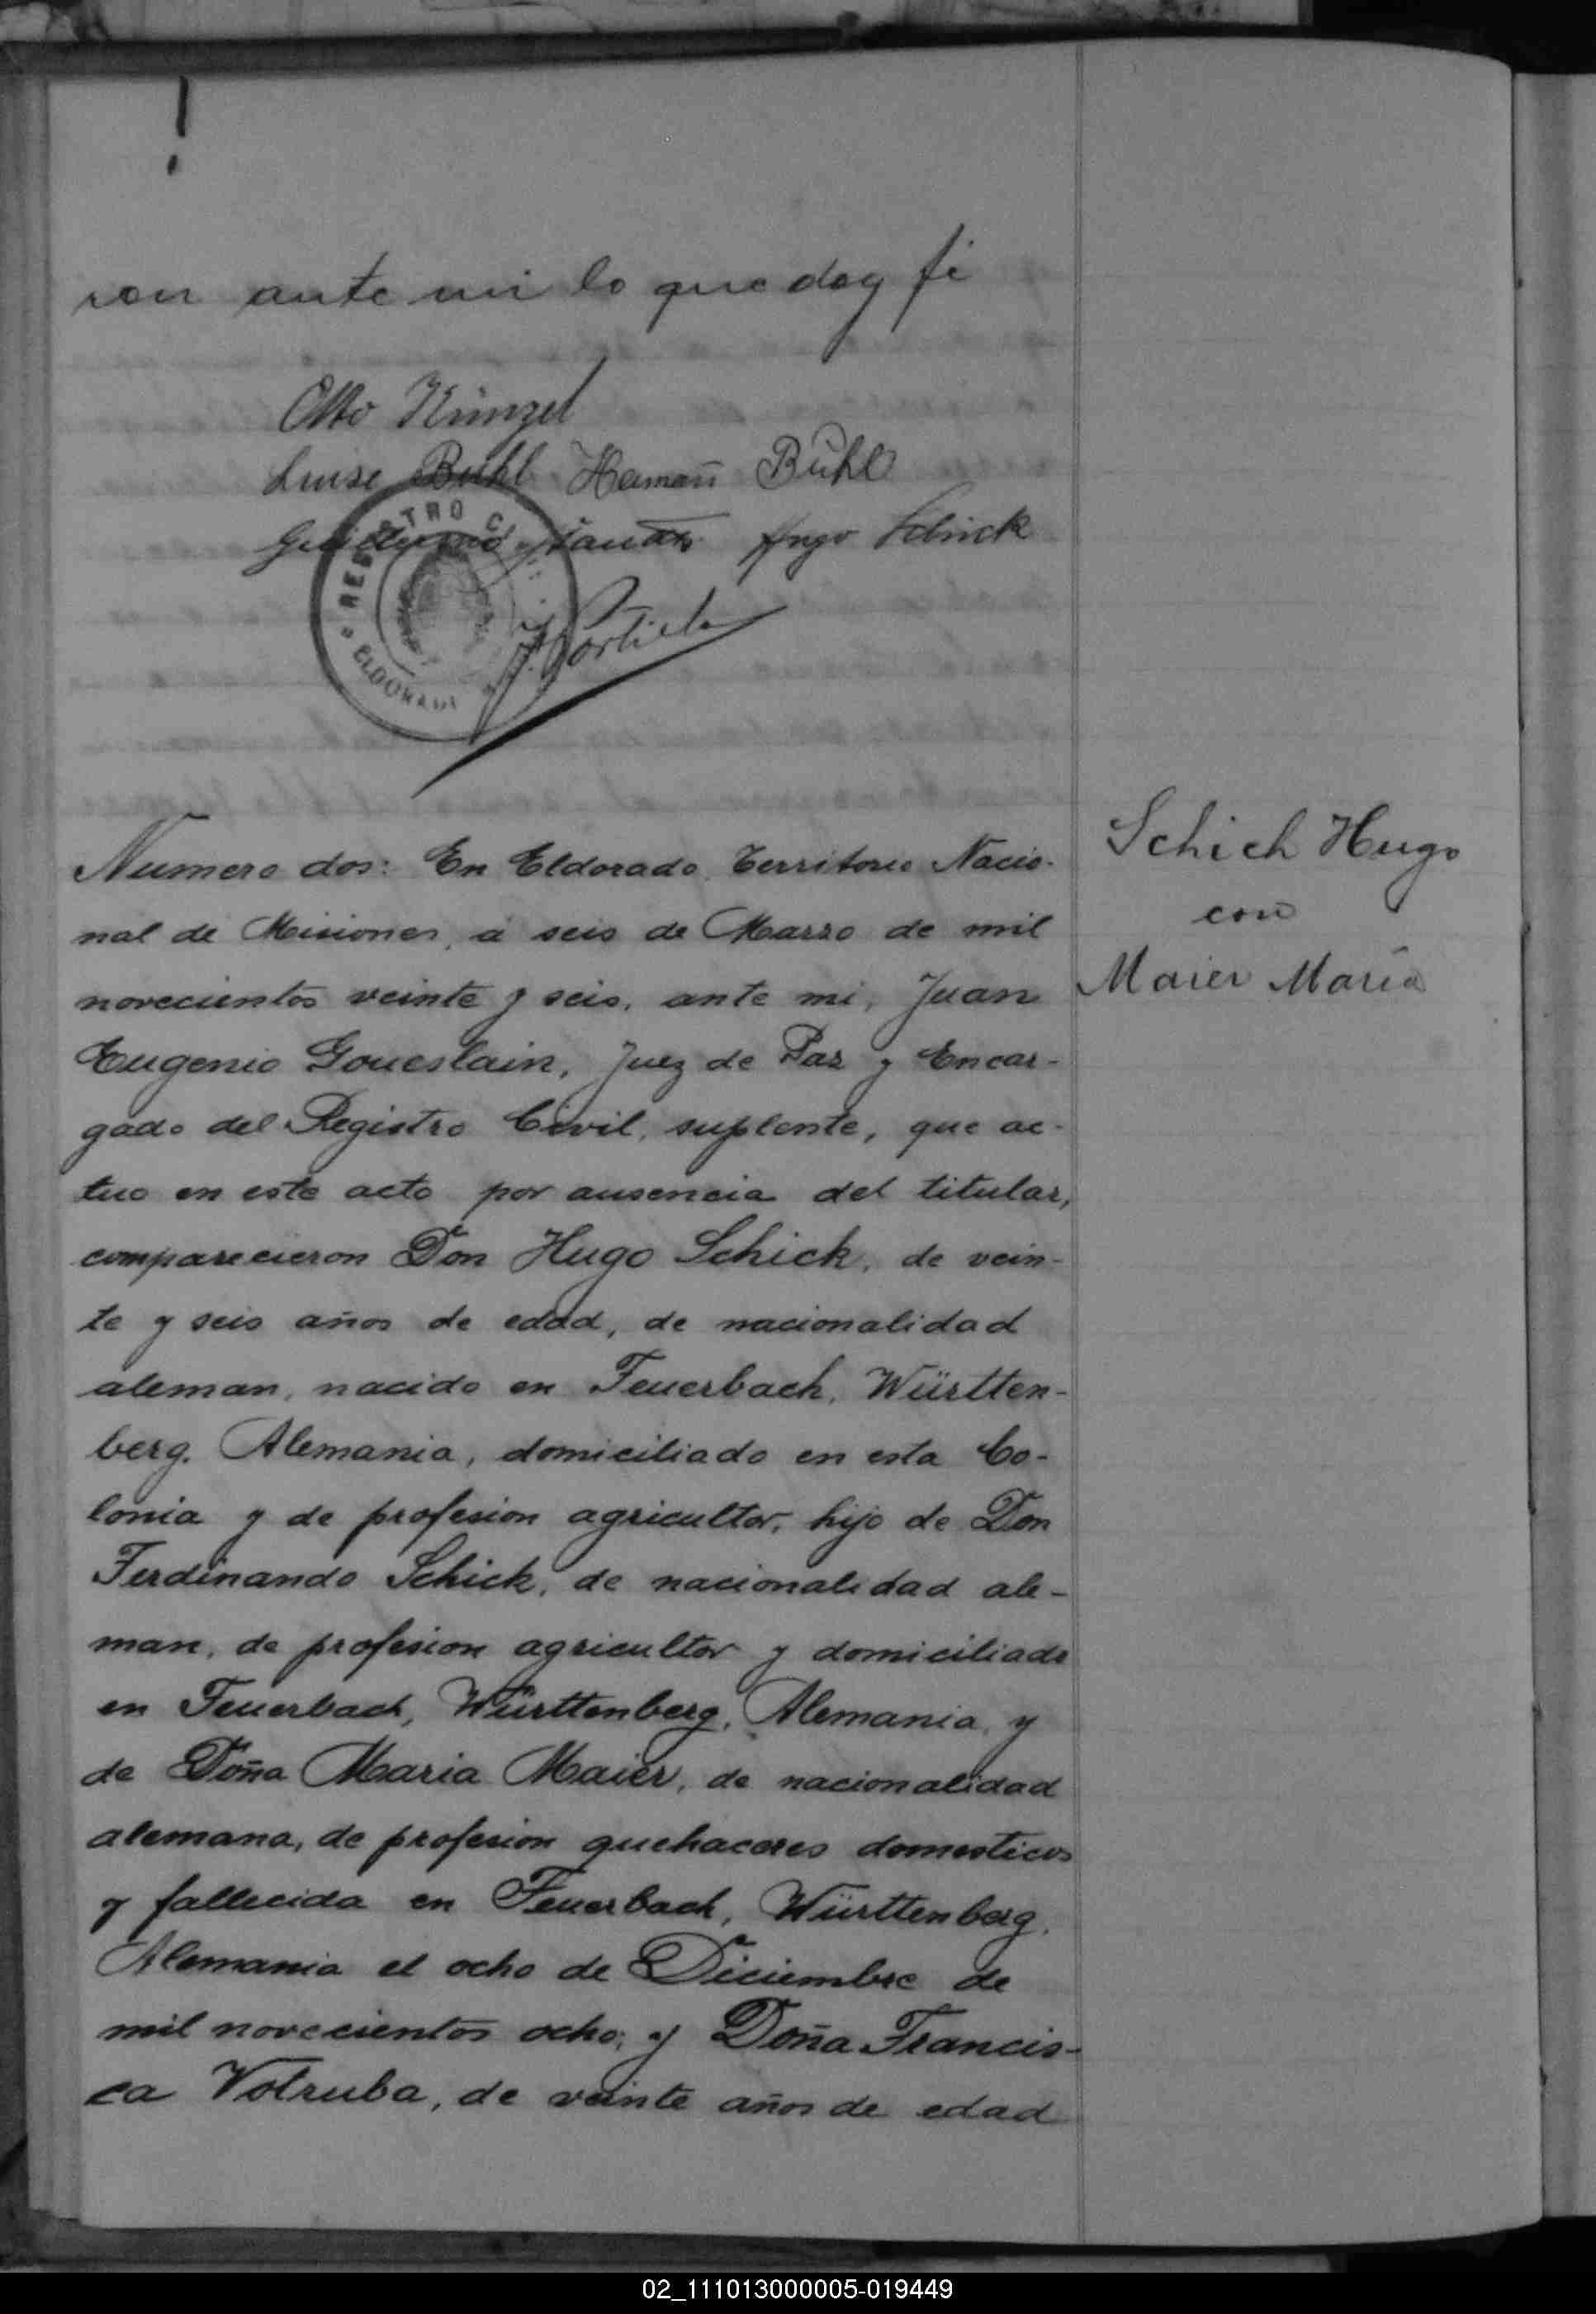 ron ante mi lo que doy fé
Otto Künzel
Luise Bühl Hermann Bühl
Hugo Schick
REGISTRO C
ELDORADO
Numero dos: En Eldorado, Territorio Nacio-
nal de Misiones, á seis de Marzo de mil
novecientos veinte y seis, ante mi, Juan
Eugenio Goueslain, Juez de Paz y Encar-
gado del Registro Civil, suplente, que ac-
tuo en este acto por ausencia del titular,
comparecieron Don Hugo Schick, de vein-
te y seis años de edad, de nacionalidad
aleman, nacido en Feuerbach, Württen-
berg, Alemania, domiciliado en esta Co-
lonia y de profesion agricultor, hijo de Don
Ferdinando Schick, de nacionalidad ale-
man, de profesion agricultor y domiciliado
en Feuerbach, Württenberg, Alemania, y
de Doña Maria Maier, de nacionalidad
alemana, de profesion quehaceres domesticos
y fallecida en Feuerbach, Württenberg,
Alemania el ocho de Diciembre de
mil novecientos ocho; y Doña Francis-
ca Votruba, de veinte años de edad
Schich Hugo
con
Maier María
02_111013000005-019449